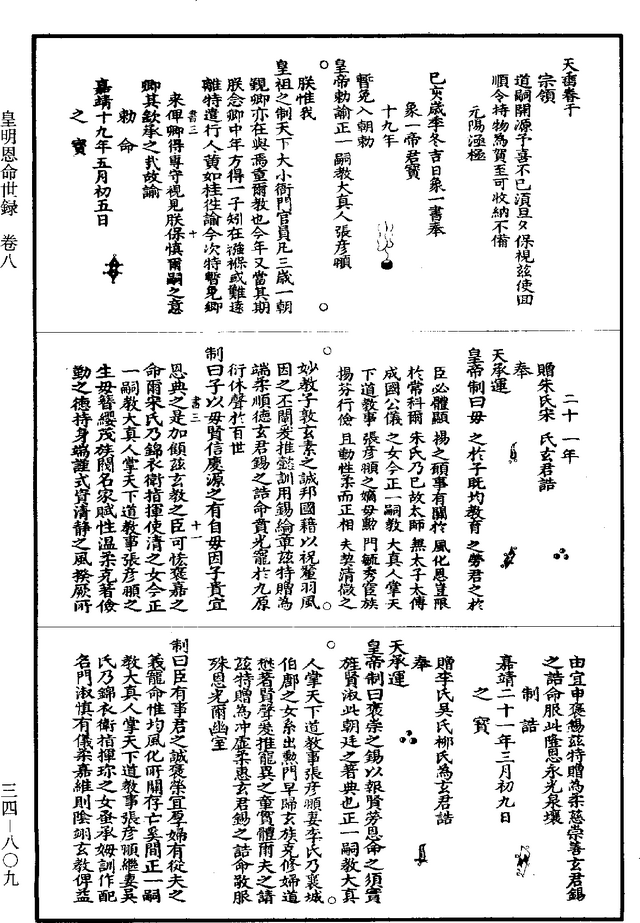 天垂眷于
宗領
道嗣開源予喜不已須旦夕保視茲使囬
順令持物為賀至可收納不備
元陽涵極
己亥歲季冬吉日象一書奉
象一帝君寶
十九年
暫免入朝勅
皇帝勅諭正一嗣教大真人張彥頨
朕惟我
皇祖之制天下大小衙門官員凡三歲一朝
覲卿亦在與焉童爾教也今年又當其期
朕念卿中年方得一子刻在襁褓或難遠
離特遣行人黃如桂徃諭今次特暫免卿
書三 十
來俾卿得專守視見朕保慎爾嗣之意
卿其欽承之弌故諭
勅命
嘉靖十九年五月初五日
之寶
二十一年
贈朱氏宋氏玄君誥
奉
天承運
皇帝制曰母之於子既均教育之勞君之於
臣必體顯揚之碩事有關於風化恩豈限
於常科爾朱氏乃已故太師無太子太傅
成國公儀之女今正一嗣教大真人掌天
下道教事張彥頨之嫡母勲門毓秀宦族
揚芬行儉且勤性柔而正相夫契清微之
妙教子敦玄素之誠邦國藉以祝釐羽風
因之丕闡爰推懿訓用錫綸章茲特贈為
端柔順德玄君錫之誥命賁光寵於九原
衍休聲於百世
制曰子以母賢信慶源之有自母因子貴宜
書三 十一
恩典之是加領茲玄教之臣可恡褒嘉之
命爾宋氏乃錦衣衛指揮使清之女今正
一嗣教大真人掌天下道教事張彥頨之
生母簪纓茂族閥閱名家賦性温柔克著儉
勤之德持身端謹式資清静之風揆厥所
由宜申褒錫茲特贈為柔慈崇善玄君錫
之誥命服此隆恩永光泉壤
制誥
嘉靖二十一年三月初九日
之寶
贈李氏吳氏柳氏為玄君誥
奉
天承運
皇帝制曰褒崇之錫以報賢勞恩命之須實
旌賢淑此朝廷之著典也正一嗣教大真
人掌天下道教事張彥頨妻李氏乃襄城
伯鄌之女系出勲門早歸玄族克修婦道
懋著賢聲爰推寵異之童實體爾夫之請
茲特贈為冲虛柔惠玄君錫之誥命敬服
殊恩光爾幽室
制曰臣有事君之誠褒榮宜厚婦有從夫之
義寵命惟均風化所關存亡奚間正一嗣
教大真人掌天下道教事張彥頨繼妻吳
氏乃錦衣衛指揮珎之女蚤承姆訓作配
名門淑慎有儀柔嘉維則陰翊玄教俾益
皇明恩命世録 卷八
三四—八〇九